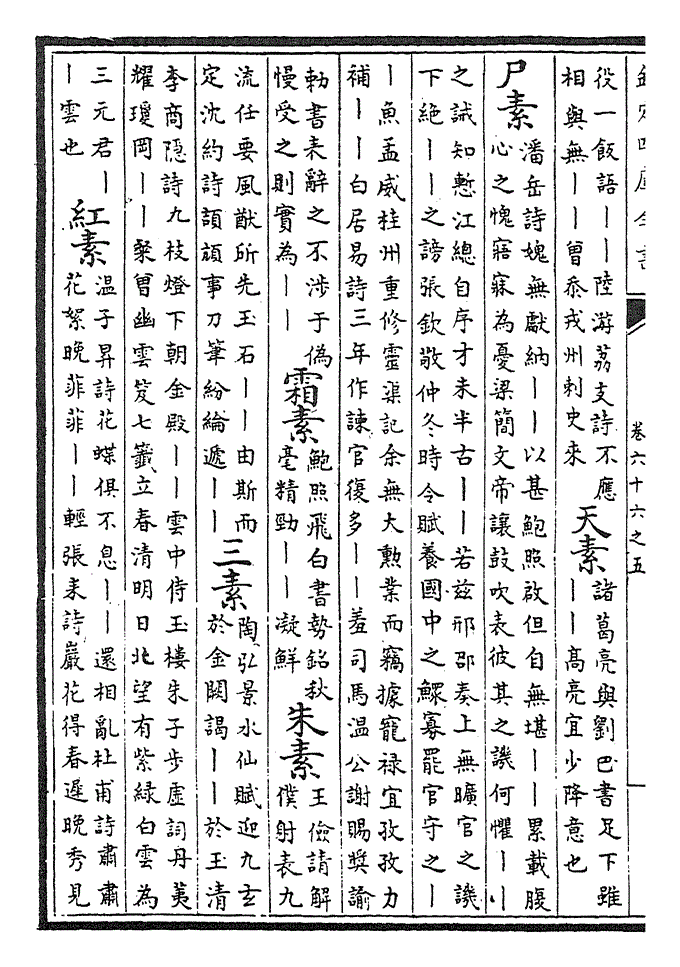 欽定四庫全書 卷六十六之五
役一飯語丨丨陸游荔支詩不應
相與無丨丨曾忝戎州刺史來
天素
諸葛亮與劉巴書足下雖
丨丨高亮宜少降意也
尸素
潘岳詩媿無獻納丨丨以甚鮑照啟但自無堪丨丨累載腹
心之愧寤寐為憂梁簡文帝讓鼓吹表彼其之譏何懼丨丨
之誡知慙江總自序才未半古丨丨若兹邢邵奏上無曠官之譏
下絶丨丨之謗張欽敬仲冬時令賦養國中之鰥寡罷官守之丨
丨魚孟威桂州重修靈渠記余無大勲業而竊據寵禄宜孜孜力
補丨丨白居易詩三年作諫官復多丨丨羞司馬温公謝賜奬諭
勅書表辭之不渉于偽
慢受之則實為丨丨
霜素
鮑照飛白書勢銘秋
毫精勁丨丨凝鮮
朱素
王儉請解
僕射表九
流任要風猷所先玉石丨丨由斯而
定沈約詩頡頏事刀筆紛綸遞丨丨
三素
陶弘景水仙賦迎九玄
於金闕謁丨丨於玉清
李商隠詩九枝燈下朝金殿丨丨雲中侍玉樓朱子步虛詞丹荑
耀瓊岡丨丨粲曾幽雲笈七籤立春清明日北望有紫緑白雲為
三元君丨
丨雲也
紅素
温子昇詩花蝶俱不息丨丨還相亂杜甫詩肅肅
花絮晚菲菲丨丨輕張耒詩巖花得春遲晚秀見